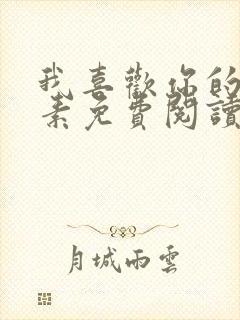 我喜歡你的
素免費閱讀
月城雨雲